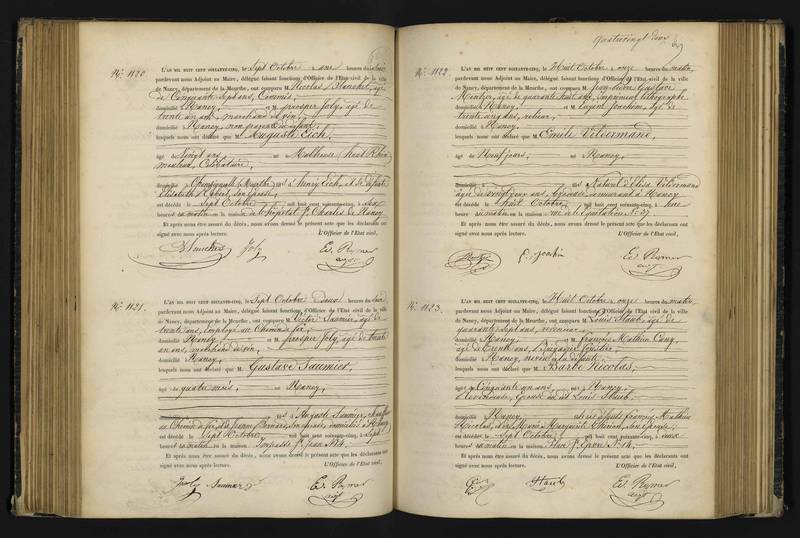 Quatrevingt deux
N.º 1120.
L'AN MIL HUIT CENT SOIXANTE-CINQ, le Sept Octobre à une heure du soir
pardevant nous Adjoint au Maire, délégué faisant fonctions d'Officier de l'Etat civil de la ville
de Nancy, département de la Meurthe, ont comparu M. Nicolas Blanchet, âgé
de Cinquante sept ans, Commis,
domicilié à Nancy, et M. prosper Joly, âgé de
trente un ans, marchand de vin,
domicilié à Nancy, non parents du défunt,
lesquels nous ont déclaré que M. Auguste Eich,
âgé de Vingt ans, né à Mulhouse (haut Rhin)
mouleur, Célibataire,
domicilié à Champigneulle (Meurthe) fils d'henry Eich, et de défunte
Elisabeth, son épouse,
est décédé le Sept Octobre mil huit cent soixante-cinq, à six
heures du matin en la maison de l'hôpital St Charles de Nancy
Et après nous être assuré du décès, nous avons dressé le présent acte que les déclarants ont
signé avec nous après lecture. L'Officier de l'Etat civil,
Blanchet Joly Ed. Rymer
adjt
N.º 1121.
L'AN MIL HUIT CENT SOIXANTE-CINQ, le Sept Octobre à Deux heures du soir
pardevant nous Adjoint au Maire, délégué faisant fonctions d'Officier de l'Etat civil de la ville
de Nancy, département de la Meurthe, ont comparu M. Victor Saumier, âgé de
trente ans, Employé au Chemin de fer,
domicilié à Nancy, et M. prosper Joly, âgé de trente
un ans, marchand de vin,
domicilié à Nancy,
lesquels nous ont déclaré que M. Gustave Saumier,
âgé de quatre mois, né à Nancy,
fils d'Auguste Saumier,
au Chemin de fer, et de Jeanne Bernard, son épouse, domiciliés à Nancy
est décédé le Sept Octobre, mil huit cent soixante-cinq, à sept
heures du matin en la maison Impasse St Jean N.º 4.
Et après nous être assuré du décès, nous avons dressé le présent acte que les déclarants ont
signé avec nous après lecture. L'Officier de l'Etat civil,
Joly Saumier Ed. Rymer
adjt
N.º 1122.
L'AN MIL HUIT CENT SOIXANTE-CINQ, le Huit Octobre à onze heures du matin,
pardevant nous Adjoint au Maire, délégué faisant fonctions d'Officier de l'Etat civil de la ville
de Nancy, département de la Meurthe, ont comparu M. Jean-pierre Gustave
âgé de quarante huit ans, Imprimeur lithographe
domicilié à Nancy, et M. Eugène Joachim, âgé de
trente cinq ans, relieur,
domicilié à Nancy,
lesquels nous ont déclaré que M. Emile Vetermand,
âgé de Neuf jours, né à Nancy,
domicilié à fils Naturel d'Elisa Vetermand
âgée de vingt deux ans, demeurant à Nancy
est décédé le huit Octobre, mil huit cent soixante-cinq, à une
heure du matin en la maison rue de l'Equitation N.º 37
Et après nous être assuré du décès, nous avons dressé le présent acte que les déclarants ont
signé avec nous après lecture. L'Officier de l'Etat civil,
E. Joachim Ed. Rymer
adjt
N.º 1123.
L'AN MIL HUIT CENT SOIXANTE-CINQ, le Huit Octobre à onze heures du matin,
pardevant nous Adjoint au Maire, délégué faisant fonctions d'Officier de l'Etat civil de la ville
de Nancy, département de la Meurthe, ont comparu M. Louis Staub, âgé de
quarante sept ans,
domicilié à Nancy, et M. François Mathieu
âgé de Trente ans, Brigadier forestier,
domicilié à Nancy, neveu de la défunte,
lesquels nous ont déclaré que M. Barbe Nicolas,
âgée de Cinquante un ans, née à Nancy,
Revendeuse, Epouse du dit Louis Staub,
domiciliée à Nancy, fille de défunts François Mathieu
Nicolas, et de Anne Marguerite son épouse,
est décédée le Sept Octobre, mil huit cent soixante-cinq, à deux
heures du matin en la maison Rue St Epvre N.º 14.
Et après nous être assuré du décès, nous avons dressé le présent acte que les déclarants ont
signé avec nous après lecture. L'Officier de l'Etat civil,
Staub Ed. Rymer
adjt